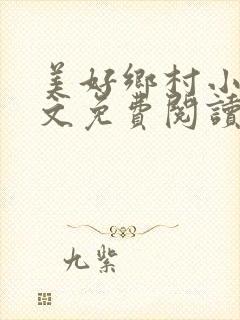 美好鄉村小
文免費閱讀
九紫